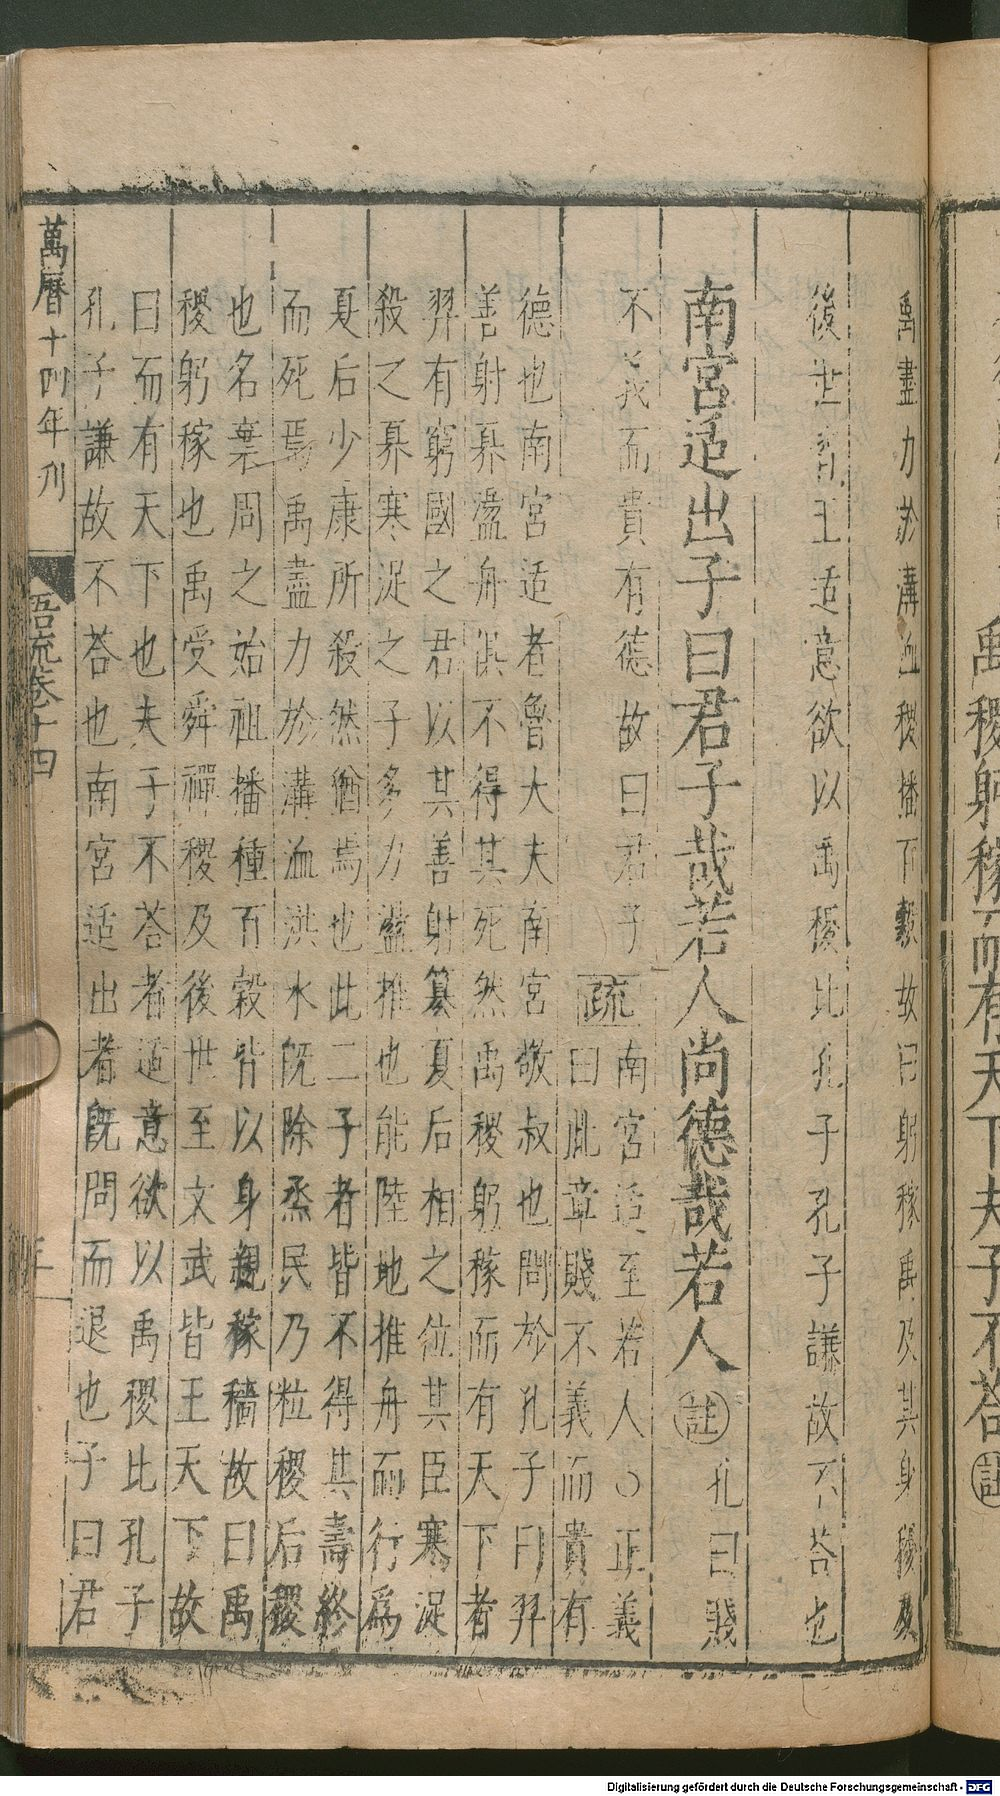 禹稷躬稼而有天下夫子不荅註
禹盡力於溝洫稷播百穀故曰躬稼禹及其身稷及
後世皆王适意欲以禹稷比孔子孔子謙故不荅也
南宮适出子曰君子哉若人尚德哉若人註孔曰賤
不義而貴有德故曰君子疏南宮适至若人○正義
曰此章賤不義而貴有
德也南宮适者魯大夫南宮敬叔也問於孔子曰羿
善射奡盪舟俱不得其死然禹稷躬稼而有天下者
羿有窮國之君以其善射篡夏后相之位其臣寒浞
殺之奡寒浞之子多力盪推也能陸地推舟而行爲
夏后少康所殺然猶焉也此二子者皆不得其壽終
而死焉禹盡力於溝洫洪水旣除烝民乃粒稷后稷
也名棄周之始祖播種百穀皆以身親稼穡故曰禹
稷躬稼也禹受舜禪稷及後世至文武皆王天下故
曰而有天下也夫子不荅者适意欲以禹稷比孔子
孔子謙故不荅也南宮适出者旣問而退也子曰君
萬曆十四年刊
語疏卷十四
Digitalisierung gefördert durch die Deutsche Forschungsgemeinschaft - DFG